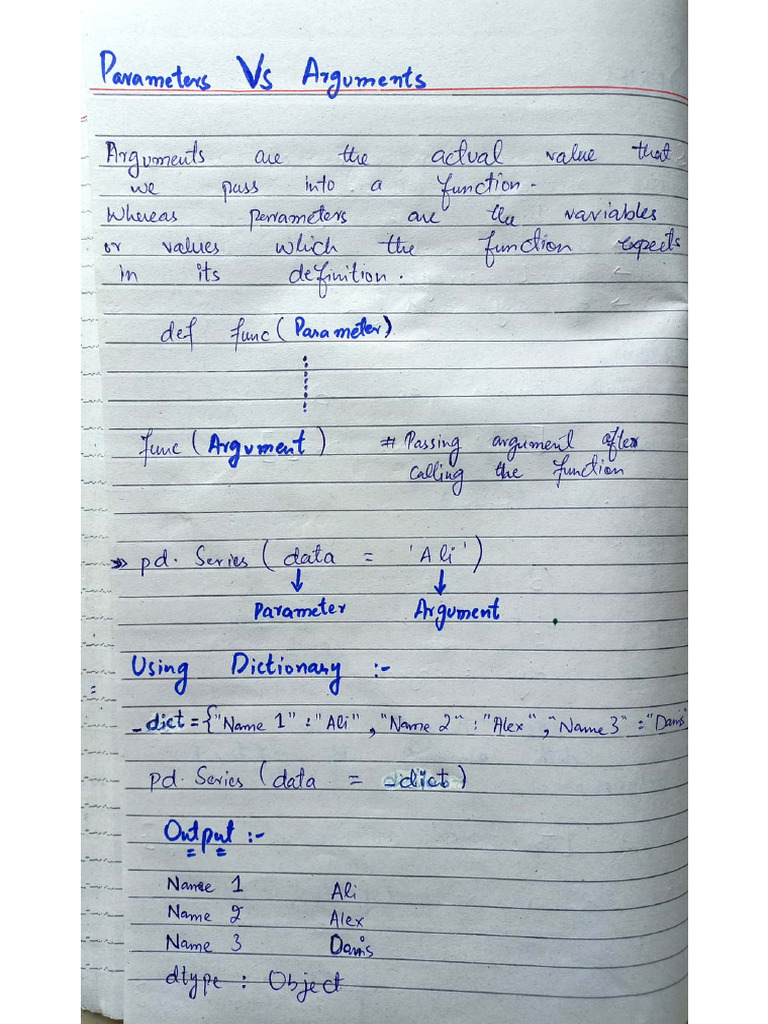 Parameters Vs Arguments
Arguments are the actual value that
we pass into a function.
Whereas perrameters are the variables
or values which the function expects
in its definition.
def func(Parameter)
func(Argument) # Passing argument after
calling the function
pd. Series (data = 'Ali')
Parameter Argument
Using Dictionary :-
_dict = {"Name 1" : "Ali", "Name 2" : "Alex", "Name 3" : "Danis
pd. Series (data = _dict)
Output :-
Name 1 Ali
Name 2 Alex
Name 3 Danis
dtype : Object